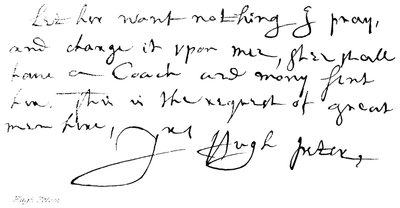 Let her want nothing I pray,
and charge it vpon mee, shee shall
haue a Coach and mony sent
her. This is the request of great
men here,
Yrs Hugh Peter,